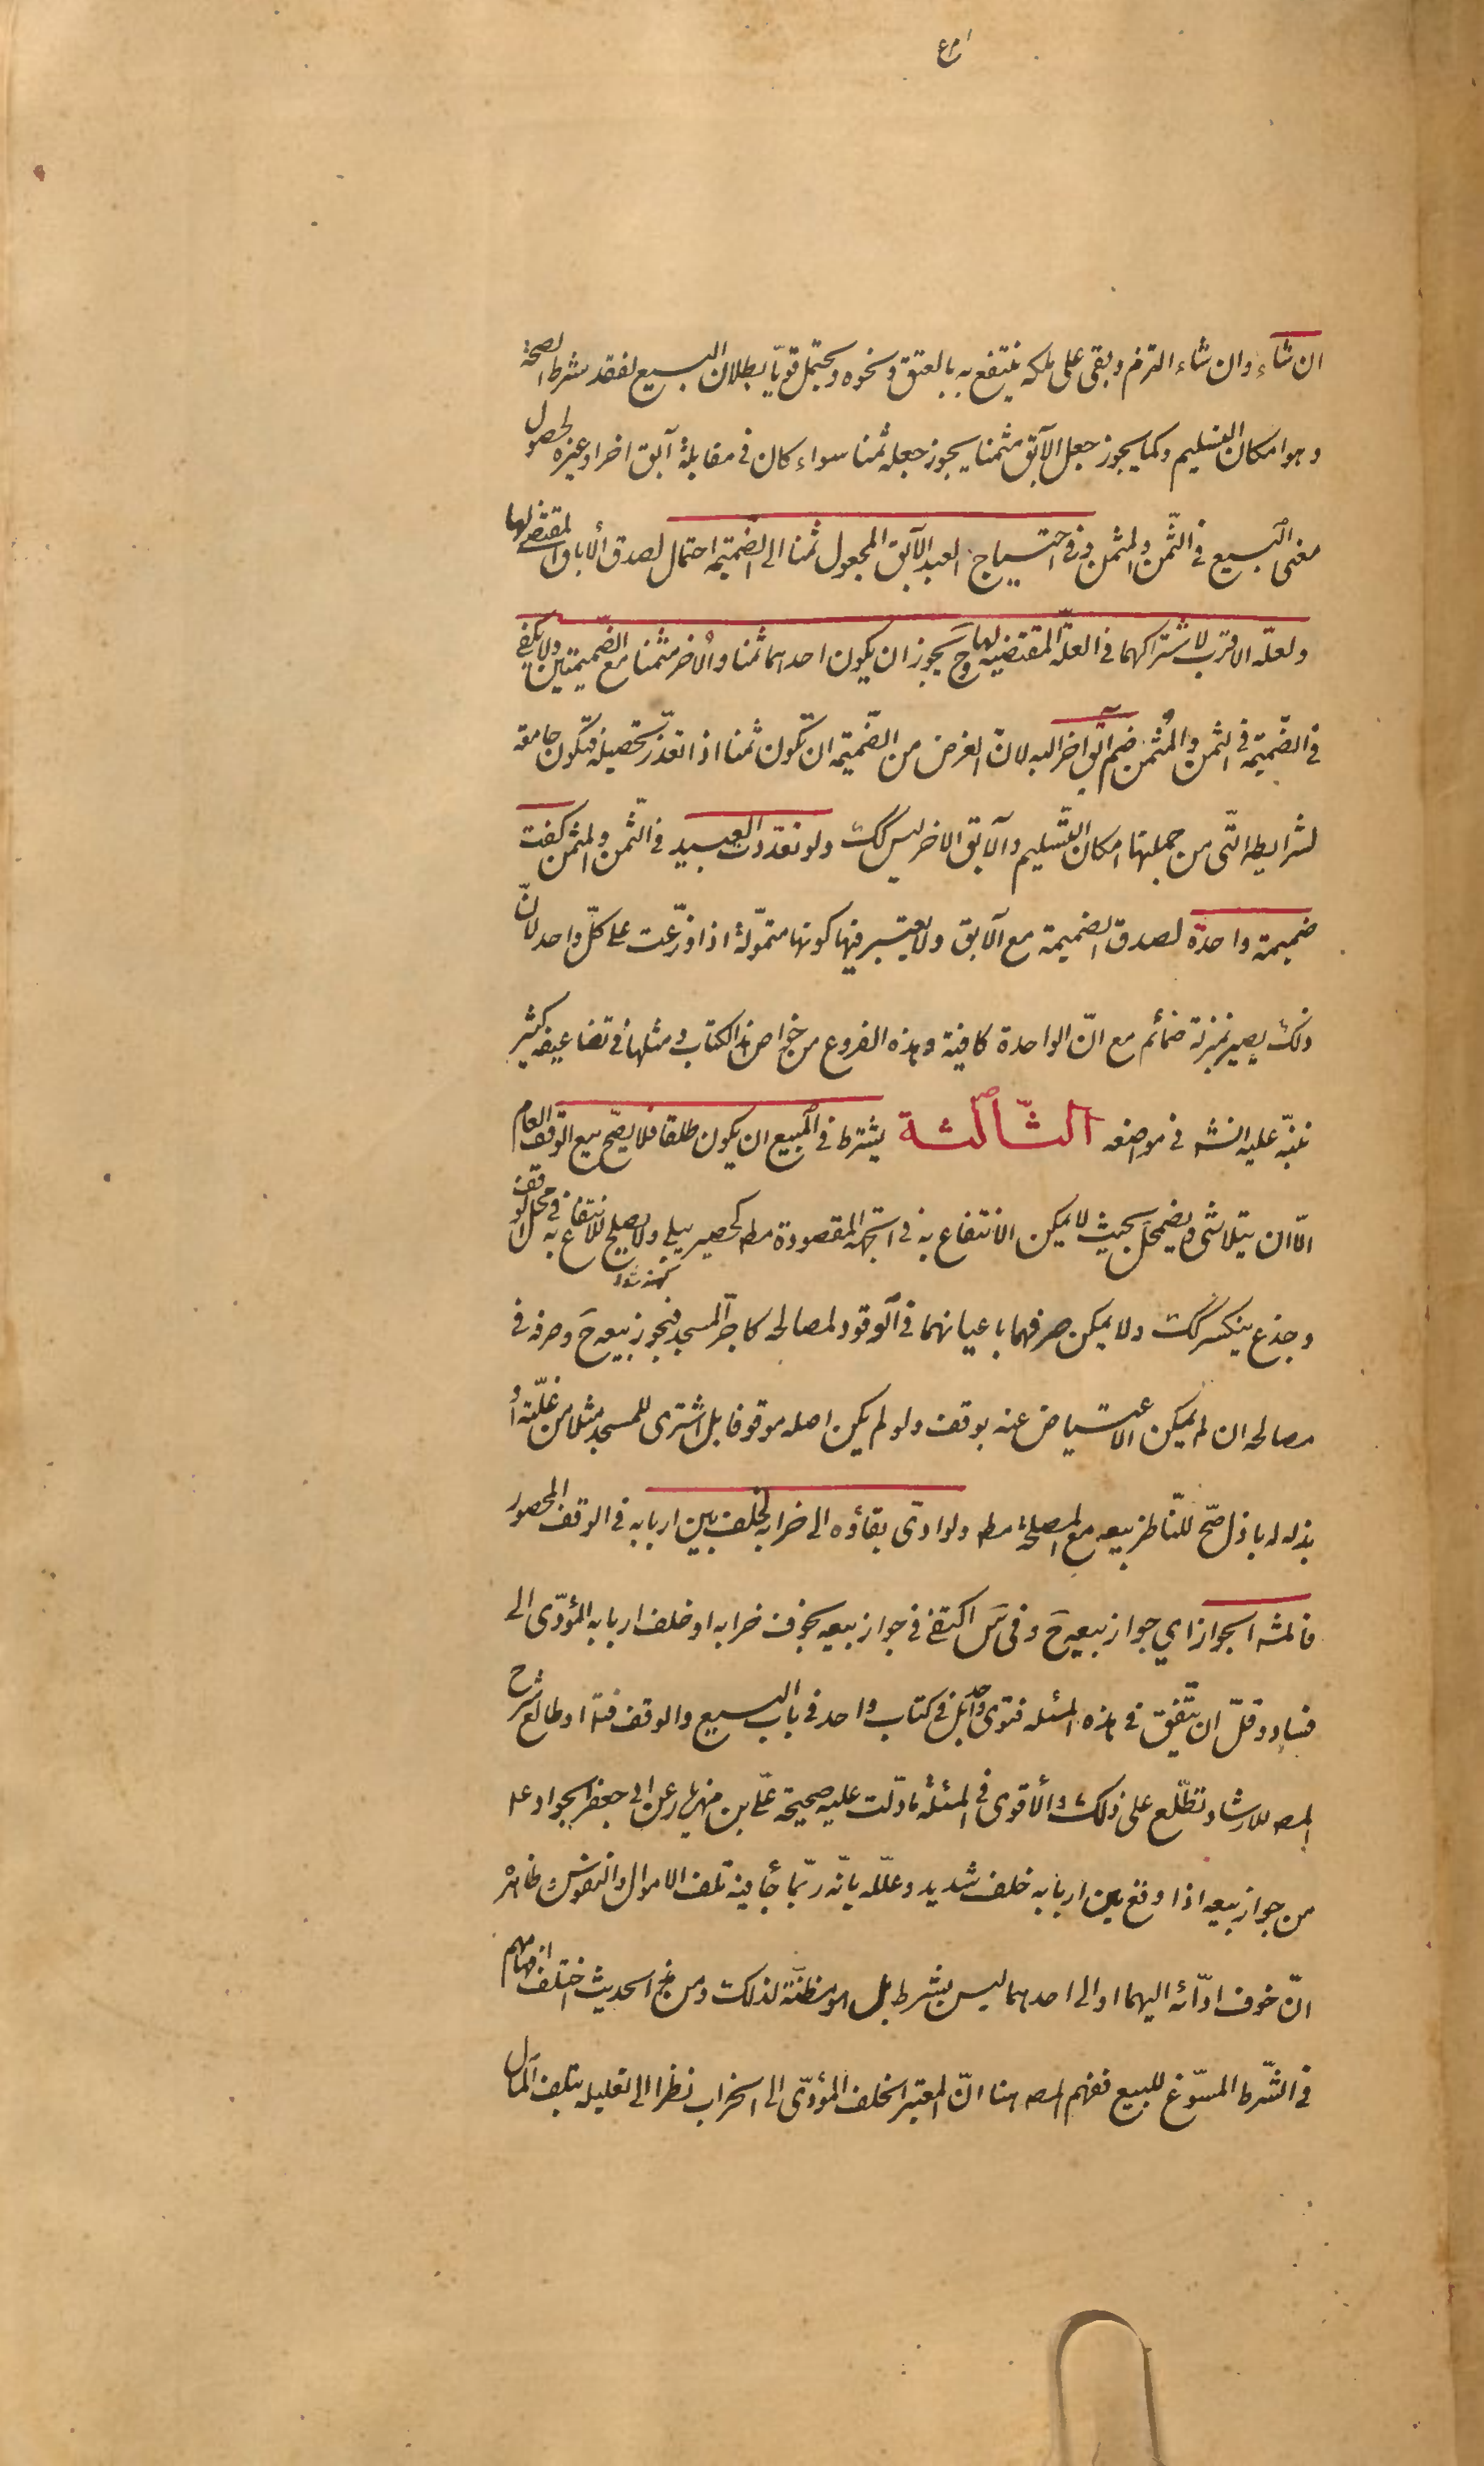 ان شاء وان شاء التزم وبقى على ملكه ينتفع به بالعتق ونحوه ويحتمل قويّا بطلان البيع لفقد شرط الصحة
وهو امكان التسليم وكما يجوز جعل الآبق مثمنا يجوز جعله ثمنا سواء كان فى مقابلة آبق اخر او غيره لحصول
معنى البيع فى الثّمن والمثمن وفى احتياج العبد الآبق المجعول ثمنا الى الضّميمة احتمال لصدق الأباق المقتضى لها
ولعلّه الاقرب لاشتراكهما فى العلّة المقتضيه لها وح يجوز ان يكون احدهما ثمنا والأخر مثمنا مع الضّميمتين ولا يكفى
فى الضّميمة فى الثمن والمُثمن ضم آبق اخر اليه لانّ الغرض من الضّميمة ان تكون ثمنا اذا تعذّر تحصيله فتكون جامعة
لشرايطه الّتى من جملتها امكان التّسليم والآبق الاخر ليس كك ولو تعدّدت العبيد فى الثّمن والمثمن كفت
ضميمة واحدة لصدق الضميمة مع الآبق ولا يعتبر فيها كونها متموّلة اذا وزّعت على كلّ واحد لانّ
ذلك يصير بمنزلة ضمائم مع انّ الواحدة كافية وهذه الفروع من خواص هذا الكتاب ومثلها فى تضاعيفه كثير
ننبّه عليه انش فى مواضعه الثّالثة يشترط فى المبيع ان يكون طلقا فلا يصّح بيع الوقف العام
الّا ان يتلاشى ويضمحلّ بحيث لا يمكن الانتفاع به فى الجهة المقصودة مط كحصير يبلى ولا يصلح للانتفاع به فى محل الوقف
كهنه شود
وجذع ينكسر كك ولا يمكن صرفهما باعيانهما فى الوقود لمصالحه كاجر المسجد فيجوز بيعه ح وصرفه فى
مصالحه ان لم يمكن الاعتياض عنه بوقف ولو لم يكن اصله موقوفا بل اشترى للمسجد مثلا من غلّته أو
بذله له باذل صّح للنّاظر بيعه مع المصلحة مط ولو ادّى بقاؤه الى خرابه لخلف بين اربابه فى الوقف المحصور
فالمشه الجواز اي جواز بيعه ح وفى س اكتفى فى جواز بيعه بخوف خرابه او خلف اربابه المؤدّى الى
فساد وقلّ ان تتّفق فى هذه المسئله فتوى واحد بل فى كتاب واحد فى باب البيع والوقف فتدا وطالع شرح
المص للارشاد تطّلع على ذلك والأقوى فى المسئلة ما دلّت عليه صحيحة علّى بن مهزيار عن ابى جعفر الجواد عله
من جواز بيعه اذا وقع بين اربابه خلف شديد وعلّله بانّه ربّما جأ فيه تلف الاموال والنفوس وظاهره
انّ خوف ادّائه اليهما او الى احدهما ليس بشرط بل هو مظنّة لذلك ومن هذا الحديث اختلف افهامهم
فى الشّرط المسوّغ للبيع ففهم المص هنا انّ المعتبر الخلف المؤدّى الى الخراب نظرا الى تعليله بتلف المال